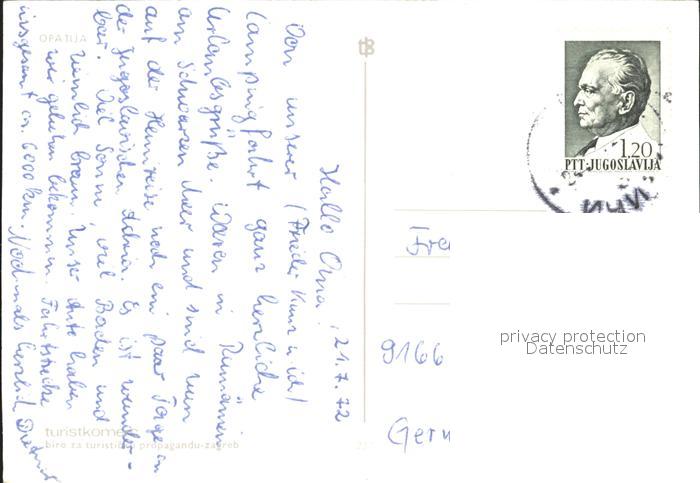 OPATIJA
Hallo Oma! 21.7.72
Von unserer (Frieder Kunz u. ich)
Campingfahrt ganz herzliche
Urlaubsgrüße. Waren in Rumänien
am Schwarzen Meer und sind nun
auf der Heimreise noch ein paar Tage in
der Jugoslawischen Adria. Es ist wunder-
bar. Viel Sonne, viel Baden und
ziemlich braun. Unser Auto haben
wir geliehen bekommen. Fahrtstrecke
insgesamt ca. 6000 km. Nochmals herzlich Dietmar
turistkomerc
biro za turističku propagandu-zagreb
tB
1.20
PTT·JUGOSLAVIJA
Fra
9166
Germ
privacy protection
Datenschutz